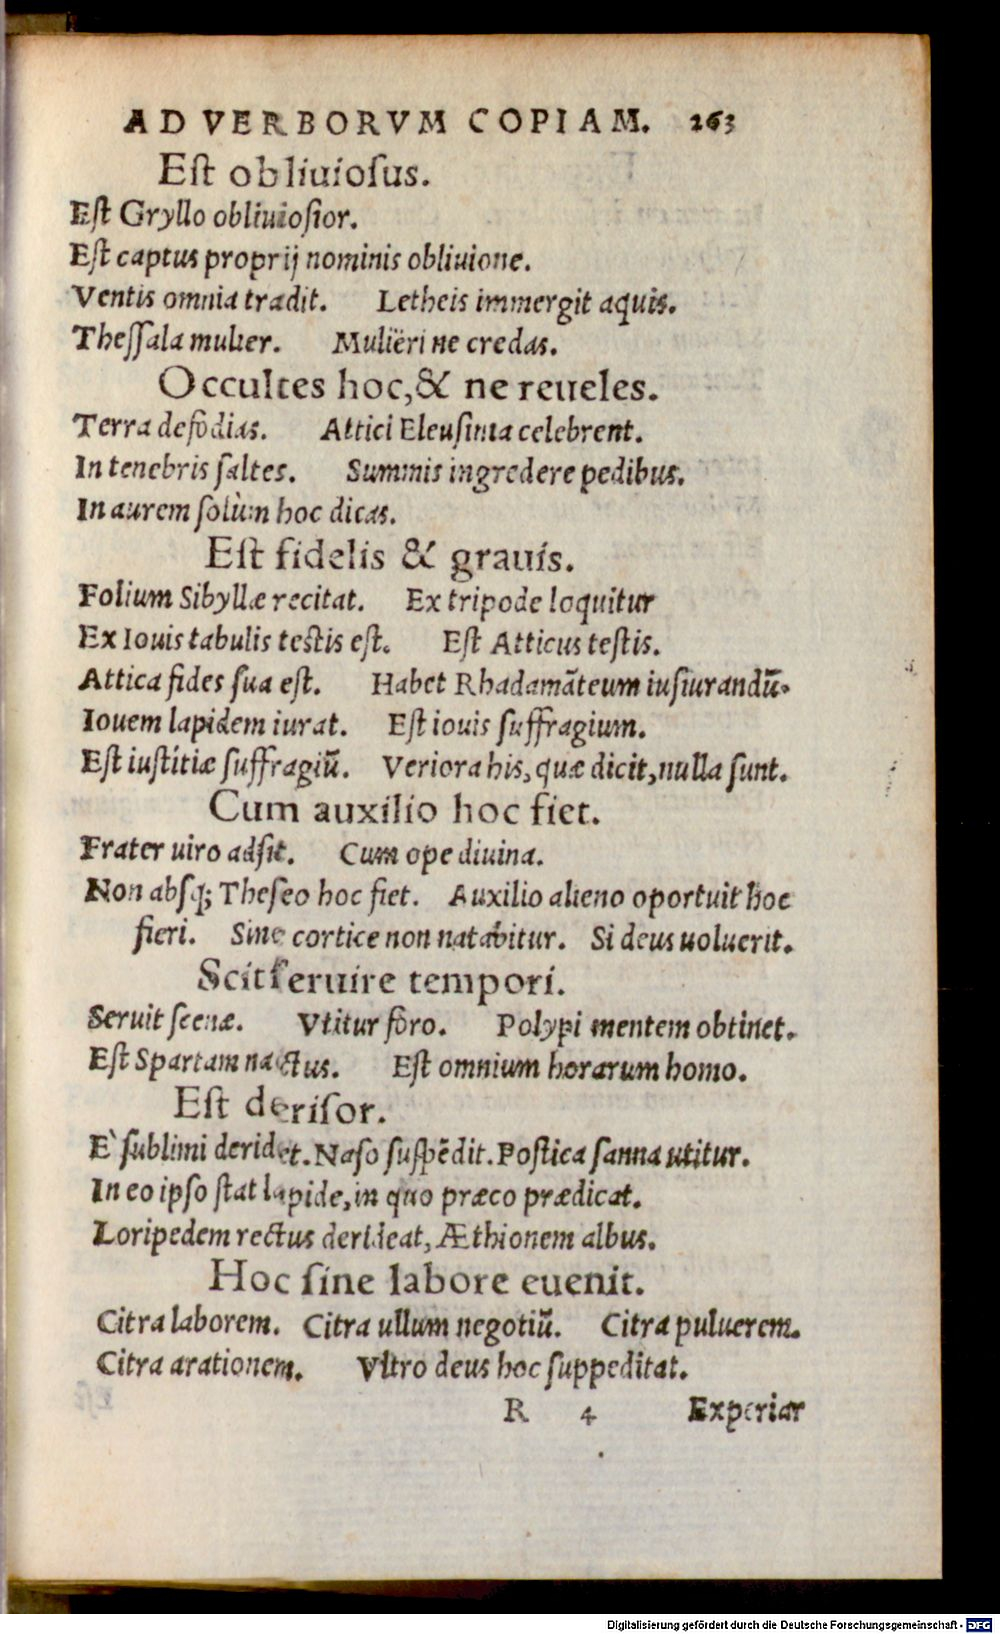 AD VERBORVM COPIAM. 263
Eſt obliuioſus.
Eſt Gryllo obliuioſior.
Eſt captus proprij nominis obliuione.
Ventis omnia tradit. Letheis immergit aquis.
Theſſala mulier. Mulieri ne credas.
Occultes hoc, & ne reueles.
Terra defodias. Attici Eleuſinia celebrent.
In tenebris ſaltes. Summis ingredere pedibus.
In aurem ſolùm hoc dicas.
Eſt fidelis & grauis.
Folium Sibyllæ recitat. Ex tripode loquitur
Ex Iouis tabulis teſtis eſt. Eſt Atticus teſtis.
Attica fides ſua eſt. Habet Rhadamāteum iuſiurandū.
Iouem lapidem iurat. Eſt iouis ſuffragium.
Eſt iuſtitiæ ſuffragiū. Veriora his, quæ dicit, nulla ſunt.
Cum auxilio hoc fiet.
Frater uiro adſit. Cum ope diuina.
Non abſq; Theſeo hoc fiet. Auxilio alieno oportuit hoc
fieri. Sine cortice non natabitur. Si deus uoluerit.
Scit ſeruire tempori.
Seruit ſcenæ. Vtitur foro. Polypi mentem obtinet.
Eſt Spartam nactus. Eſt omnium horarum homo.
Eſt deriſor.
E` ſublimi deridet. Naſo ſuſpēdit. Poſtica ſanna utitur.
In eo ipſo ſtat lapide, in quo præco prædicat.
Loripedem rectus derideat, Æthionem albus.
Hoc ſine labore euenit.
Citra laborem. Citra ullum negotiū. Citra puluerem.
Citra arationem. Vltro deus hoc ſuppeditat.
R 4 Experiar
Digitalisierung gefördert durch die Deutsche Forschungsgemeinschaft - DFG